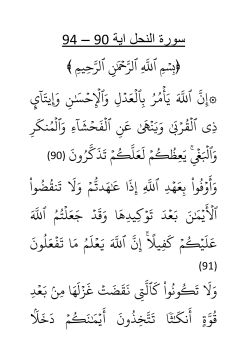 سورة النحل اية 90 – 94
﴿بِسْمِ اللَّهِ الرَّحْمَٰنِ الرَّحِيمِ﴾
۞إِنَّ ٱللَّهَ يَأْمُرُ بِٱلْعَدْلِ وَٱلْإِحْسَٰنِ وَإِيتَآيِٕ
ذِى ٱلْقُرْبَىٰ وَيَنْهَىٰ عَنِ ٱلْفَحْشَآءِ وَٱلْمُنكَرِ
وَٱلْبَغْىِ ۚ يَعِظُكُمْ لَعَلَّكُمْ تَذَكَّرُونَ (90)
وَأَوْفُوا۟ بِعَهْدِ ٱللَّهِ إِذَا عَٰهَدتُّمْ وَلَا تَنقُضُوا۟
ٱلْأَيْمَٰنَ بَعْدَ تَوْكِيدِهَا وَقَدْ جَعَلْتُمُ ٱللَّهَ
عَلَيْكُمْ كَفِيلًا ۚ إِنَّ ٱللَّهَ يَعْلَمُ مَا تَفْعَلُونَ
(91)
وَلَا تَكُونُوا۟ كَٱلَّتِى نَقَضَتْ غَزْلَهَا مِنۢ بَعْدِ
قُوَّةٍ أَنكَٰثًا تَتَّخِذُونَ أَيْمَٰنَكُمْ دَخَلًۢا